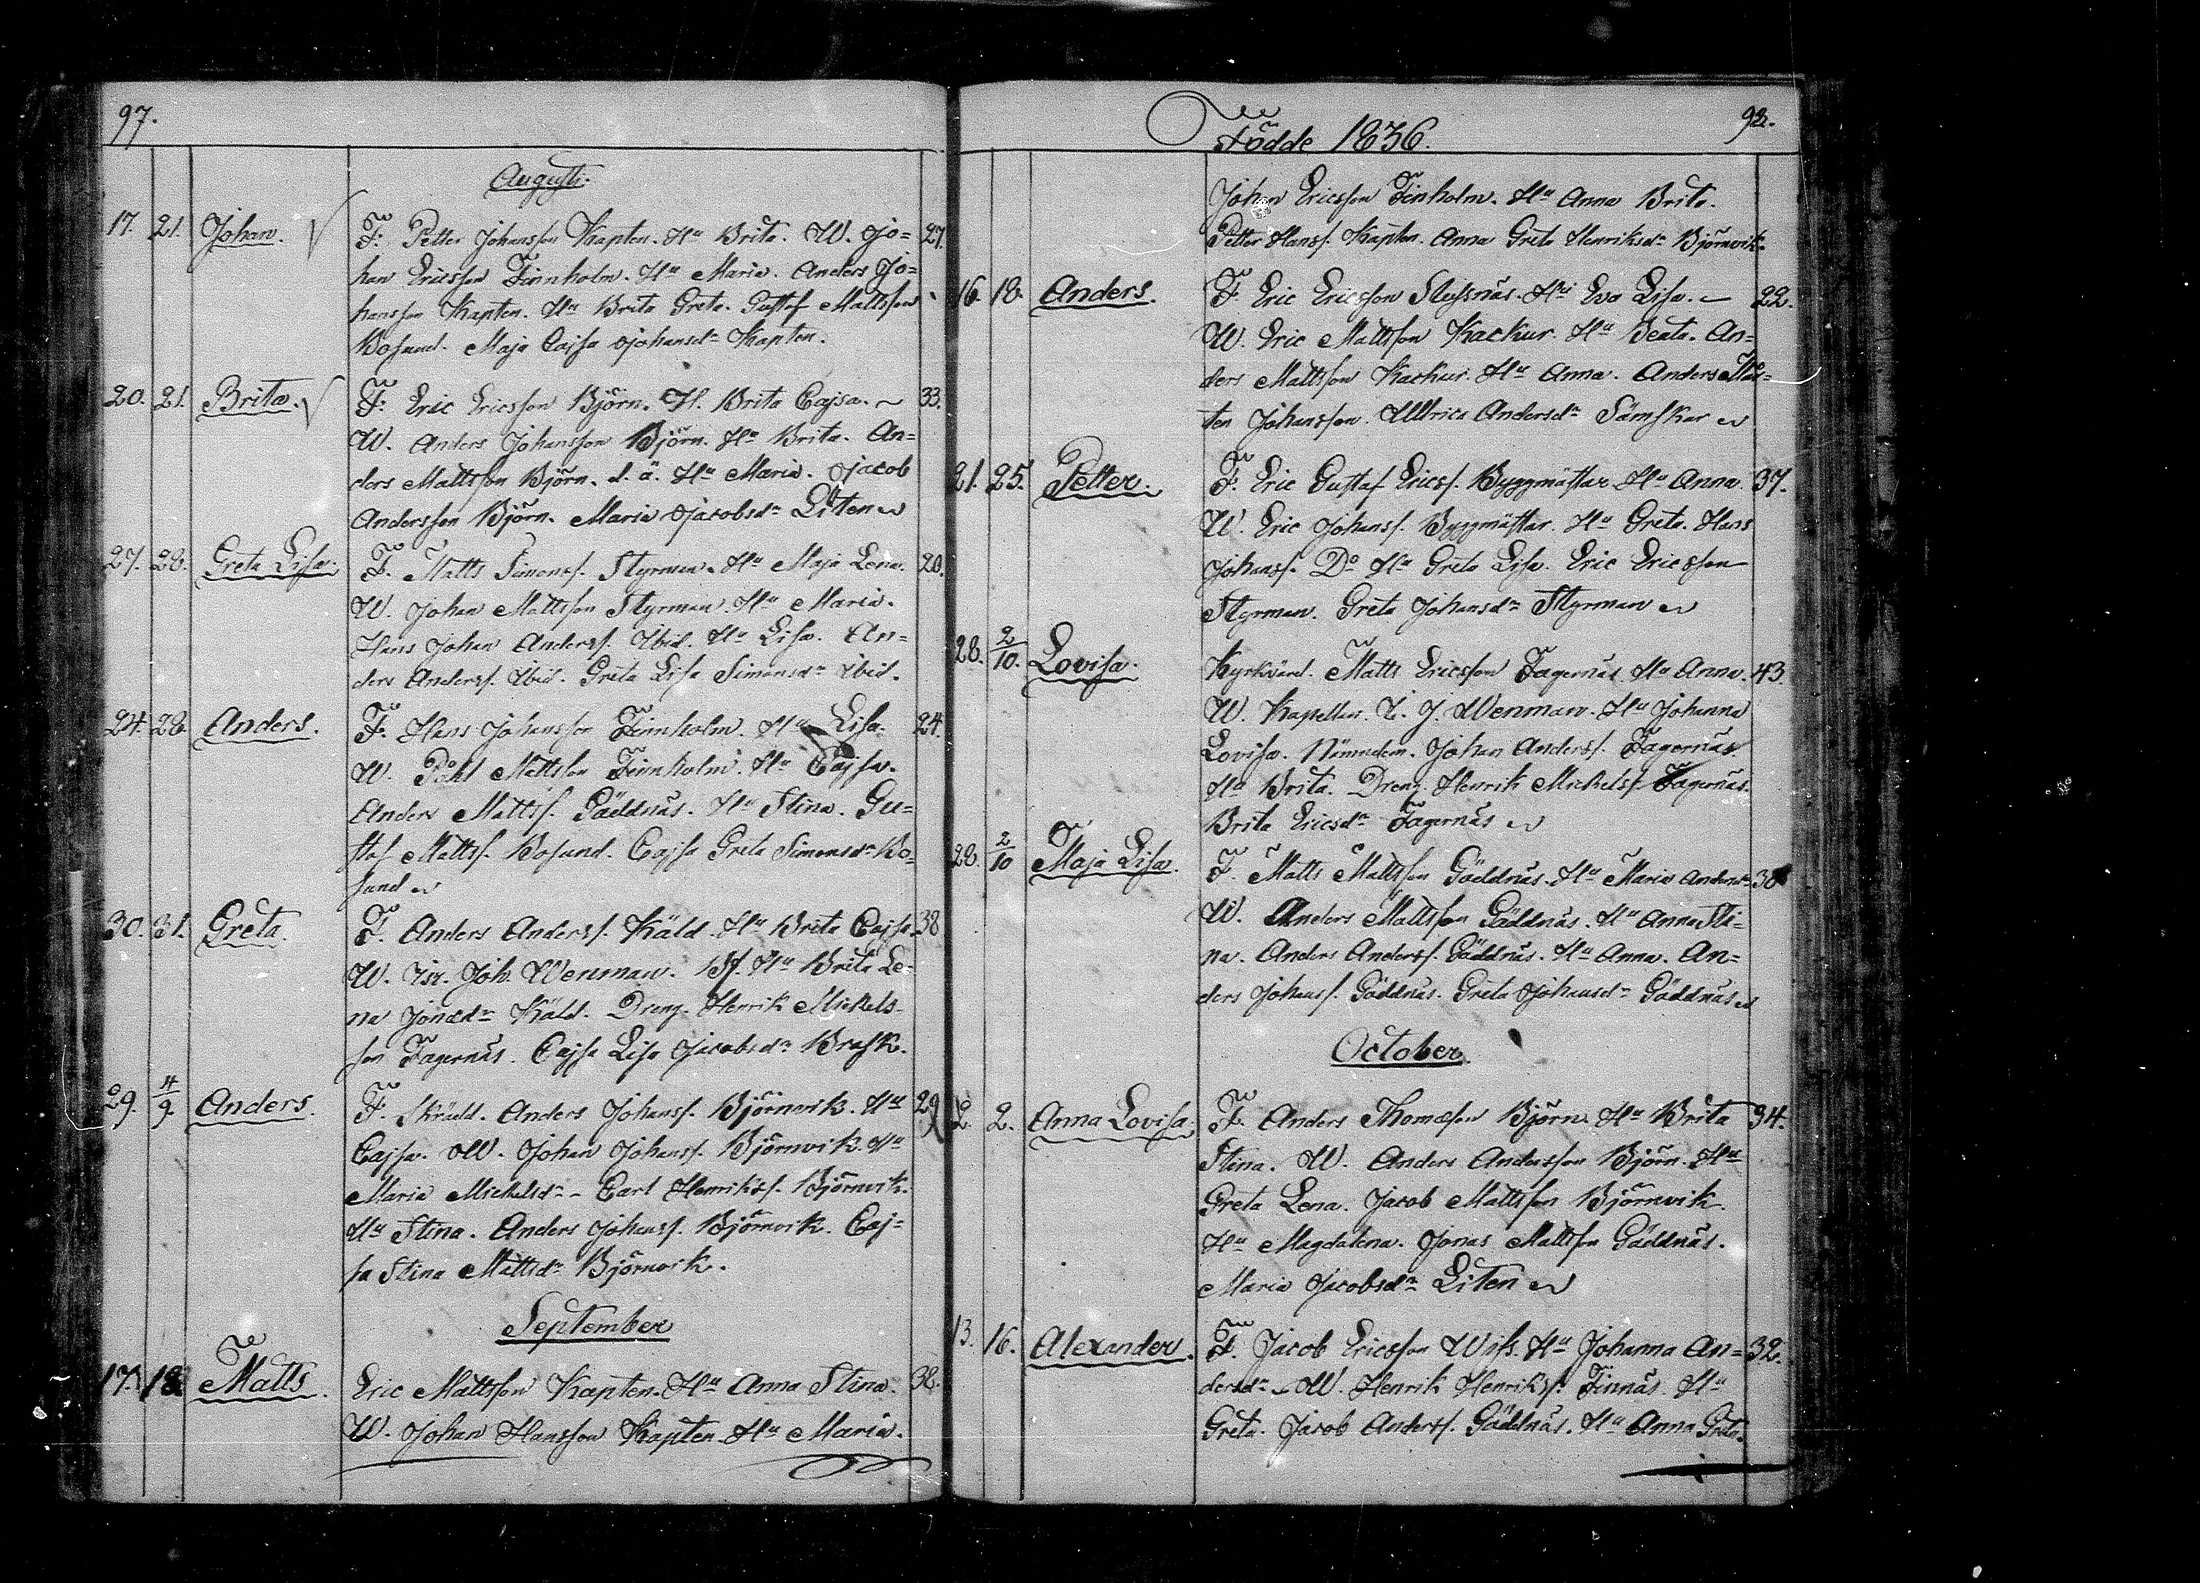 97.
Augusti.
17. 21. Johan. F: Petter Johansson Kapten. Hu Brita. W. Jo= 27.
han Ericsson Finnholm. Hu Maria. Anders Jo=
hansson Kapten. Hu Brita Greta. Gustaf Mattsson
Bosund. Maja Cajsa Johansdr Kapten.
20. 21. Brita. F: Eric Ericsson Björn. H. Brita Cajsa. 33.
W. Anders Johansson Björn. Hu Brita. An=
ders Mattsson Björn. d. ä. Hu Maria. Jacob
Andersson Björn. Maria Jacobsdr Liten
27. 28. Greta Lisa. F. Matts Simonss. Styrman. Hu Maja Lena. 20.
W. Johan Mattsson Styrman. Hu Maria.
Hans Johan Anderss. Ibid. Hu Lisa. An=
ders Anderss. Ibid. Greta Lisa Simonsdr Ibid.
24. 28. Anders. F. Hans Johansson Finnholm. Hu Lisa. 24.
W. Påhl Mattsson Finnholm. Hu Cajsa.
Anders Mattss. Gäddnäs. Hu Stina. Gu=
staf Mattss. Bosund. Cajsa Greta Simonsdr Bo=
sund
30. 31. Greta. F. Anders Anderss. Käld. Hu Brita Cajsa. 38
W. Joh. Wenman. Hu Brita Le=
na Jonædr Käld. Dreng. Henrik Mickels-
son Fagernäs. Cajsa Lisa Jacobsdr Brask.
29. 4/9 Anders. F. Skrädd. Anders Johanss. Björnvik. Hu 29
Cajsa. W. Johan Johanss. Björnvik. Hu
Maria Mickelsdr - Carl Henrikss. Björnvik.
Hu Stina. Anders Johanss. Björnvik. Caj=
sa Stina Mattsdr Björnvik.
September
17. 18. Matts. Eric Mattsson Kapten. Hu Anna Stina. 38.
W. Johan Hansson Kapten. Hu Maria.
98.
Födde 1836.
Johan Ericsson Finholm. Hu Anna Brita.
Petter Hanss. Kapten. Anna Greta Henriksdr Björnvik.
16. 18. Anders. F. Eric Ericsson Slussnäs. Hu Eva Lisa. 22.
W. Eric Mattsson Kackur. Hu Beata. An=
ders Mattsson Kackur. Hu Anna. Anders Mår=
ten Johansson. Ullrica Andersdr Sämskar
21. 25. Petter. F. Eric Gustaf Ericss. Byggmästar. Hu Anna. 37.
W. Eric Johanss. Byggmästar. Hu Greta. Hans
Johanss. Do Hu Greta Lisa. Eric Ericsson
Styrman. Greta Johansdr Styrman
28. 2/10. Lovisa. Kyrkvärd. Matts Ericsson Fagernäs. Hu Anna. 43.
W. Kapellan. J. Wenman. Hu Johanna
Lovisa. Nämndem. Johan Anderss. Fagernäs
Hu Brita. Dreng. Henrik Mickelss. Fagernäs.
Brita Ericsdr Fagernäs
28. 2/10 Maja Lisa. F. Matts Mattsson Gäddnäs. Hu Maria Andersdr 38
W. Anders Mattsson Gäddnäs. Hu Anna Sti-
na. Anders Anderss. Gäddnäs. Hu Anna. An=
ders Johanss. Gäddnäs. Greta Johansdr Gäddnäs
October.
2. 2. Anna Lovisa. F. Anders Thomæson Björn. Hu Brita 34.
Stina. W. Anders Andersson Björn. Hu
Greta Lena. Jacob Mattsson Björnvik.
Hu Magdalena. Jonas Mattsson Gäddnäs.
Maria Jacobsdr Liten
13. 16. Alexander. F. Jacob Ericsson Wass. Hu Johanna An= 32.
dersdr - W. Henrik Henrikss. Finnäs. Hu
Greta. Jacob Anderss. Gäddnäs. Hu Anna Greta.